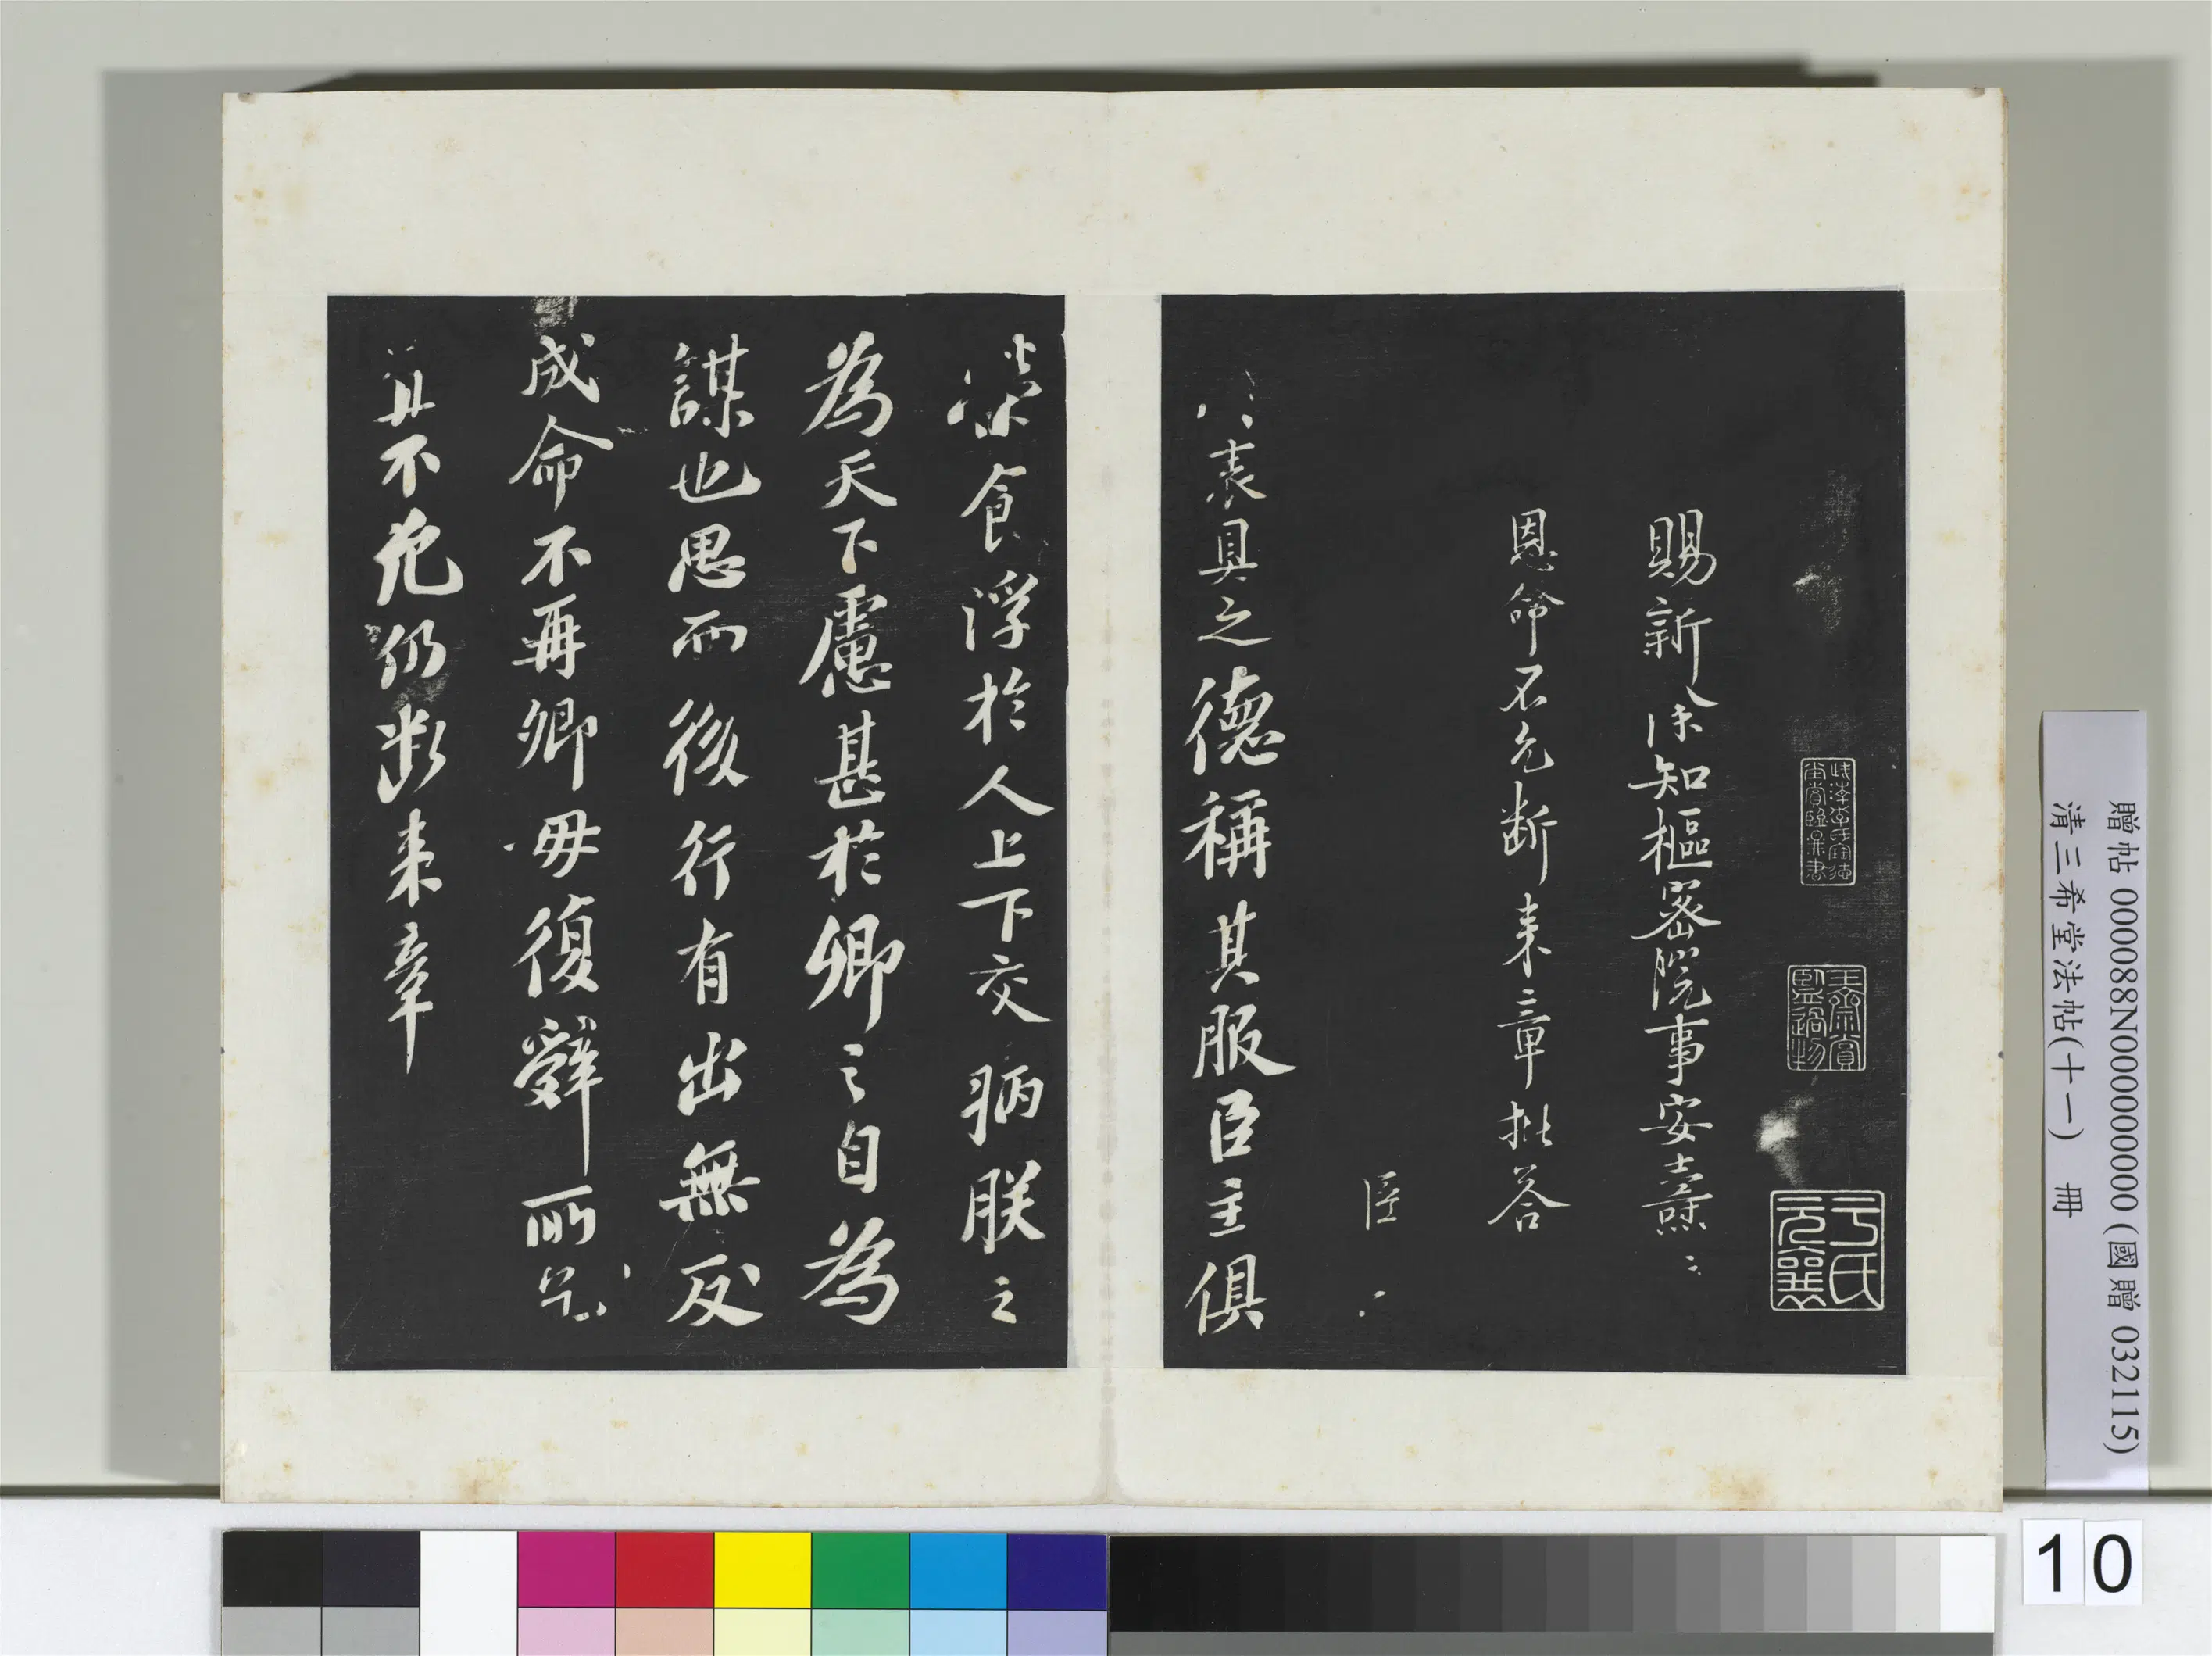 賜新除知樞密院事安燾
恩命不允斷來章批答
臣
表具之德稱其服臣主俱
榮食浮於人上下交病朕之
為天下慮甚於卿之自為
謀也思而後行有出無反
成命不再卿毋復辭所乞
宜不允仍斷來章
贈帖 000088N000000000 (國贈 032115)
清三希堂法帖(十一) 冊
10